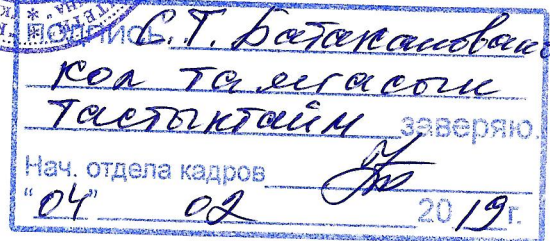 Подпись С.Т. Батакановань
кол тамгасын
тастыктайм заверяю.
Нач. отдела кадров
"04" 02 2019 г.